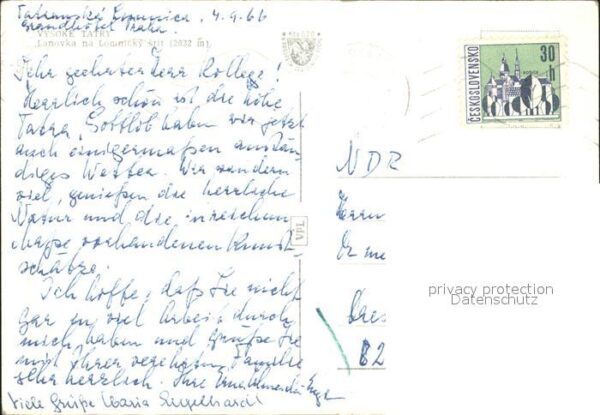 Tatranská Lomnica, 4.9.66
Grandhotel Praha.
VYSOKÉ TATRY
Lanovka na Lomnický štít (2632 m)
Sehr geehrter Herr Kollege!
Herrlich schön ist die hohe
Tatra, Gottlob haben wir jetzt
auch einigermaßen anstän-
diges Wetter. Wir wandern
viel, genießen die herrliche
Natur und die in reichem
Maße vorhandenen Kunst-
schätze.
Ich hoffe, daß Sie nicht
gar zu viel Arbeit durch
mich haben und grüße Sie
mit Ihrer verehrten Familie
sehr herzlich. Ihre
Viele Grüße Maria Engelhardt
ČESKOSLOVENSKO
30
h
VPL
Herrn
Dr me
Dres
privacy protection
Datenschutz